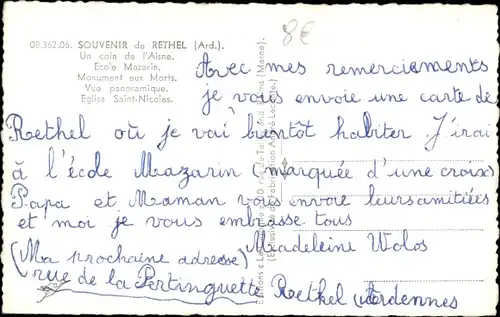 08.362.05. SOUVENIR de RETHEL (Ard.).
Un coin de l'Aisne.
Ecole Mazarin.
Monument aux Morts.
Vue panoramique.
Eglise Saint-Nicolas.
8€
Avec mes remerciements
je vous envoie une carte de
Rethel où je vai bientôt habiter J'irai
à l'école Mazarin (marquée d'une croix)
Papa et Maman vous envoie leurs amitiées
et moi je vous embrasse tous
Madeleine Wolos
(Ma prochaine adresse)
rue de la Pertinguette Rethel Ardennes